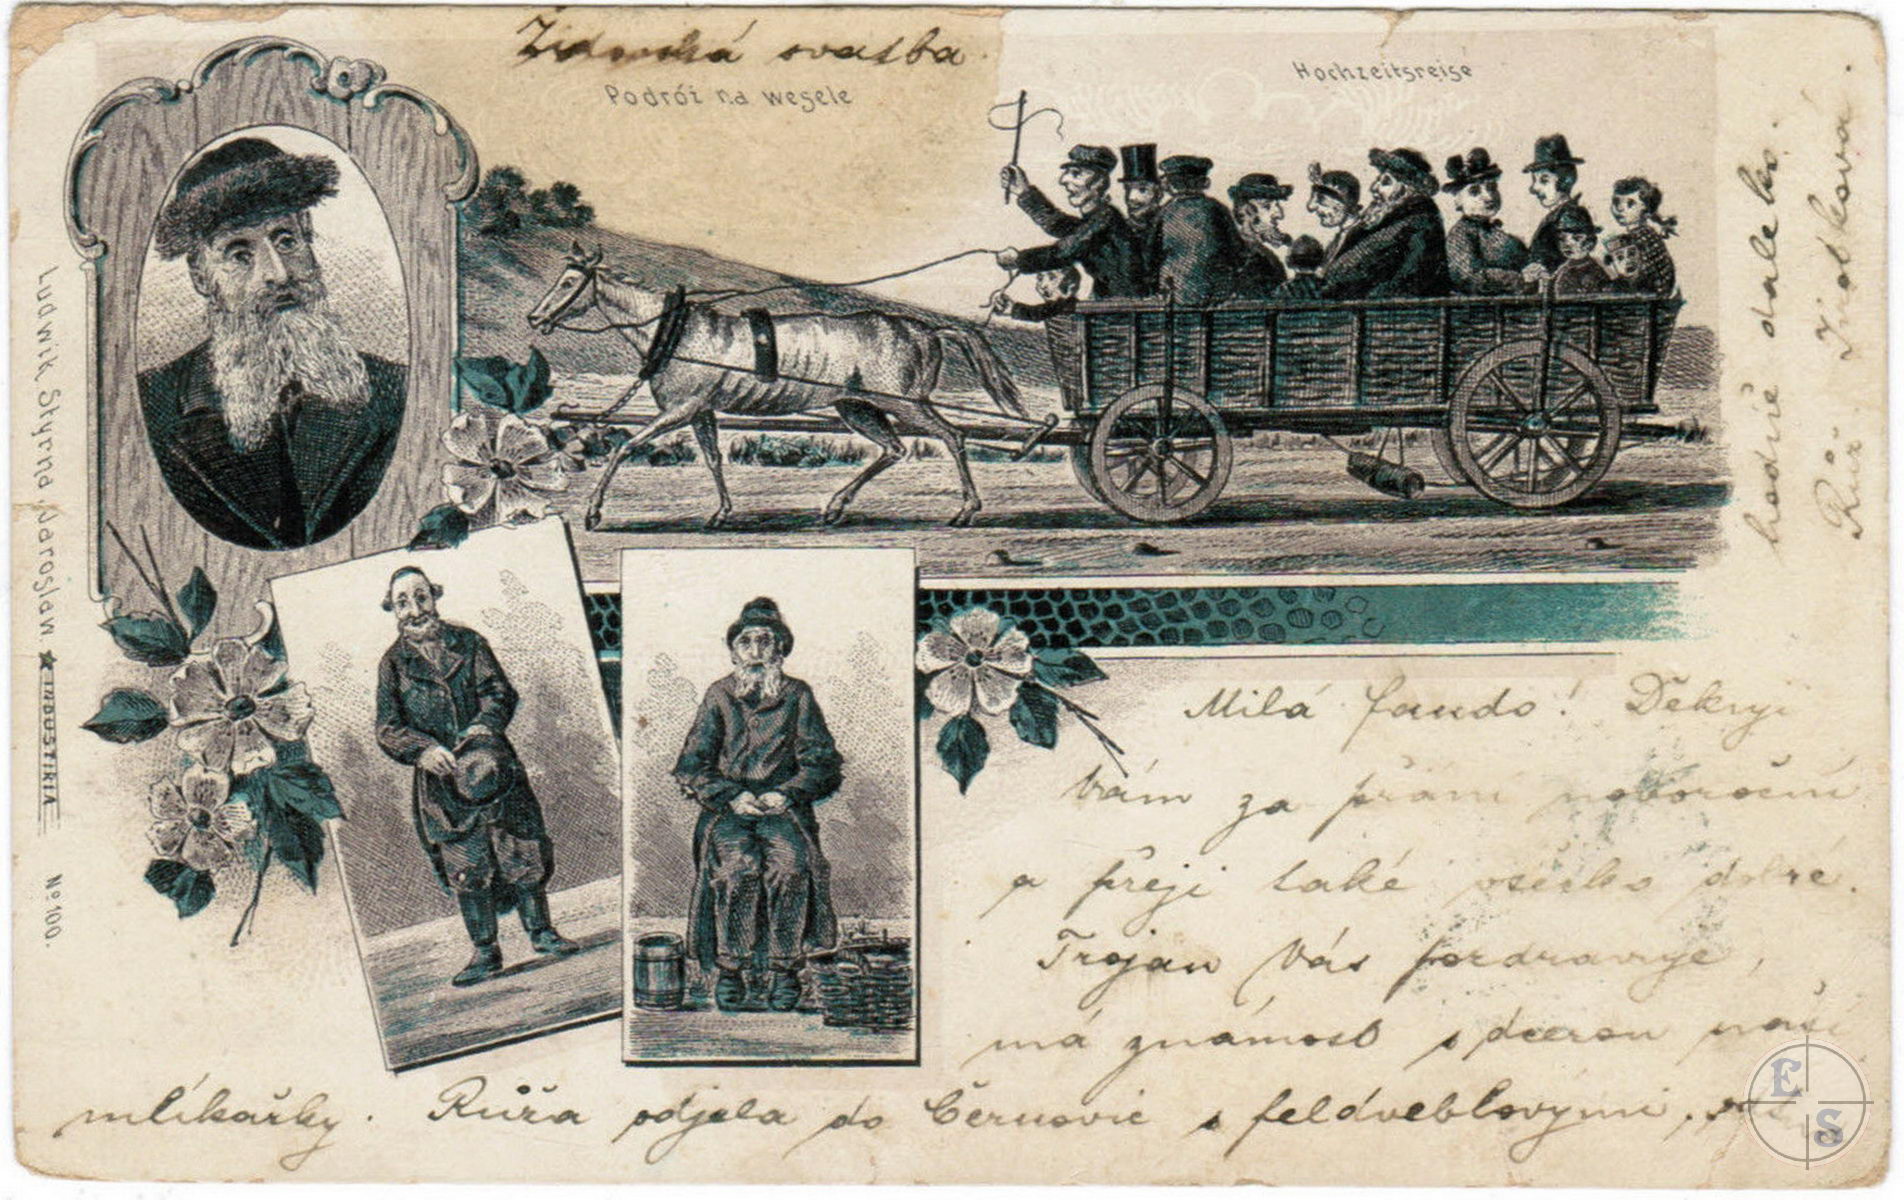 Židovská svatba.
Podróż na wesele
Hochzeitsreise
Ludwik Styrna, Jarosław ★ INDUSTRIA
No 100.
Milá Fando! Děkuji
Vám za přání novoroční
a přeji také všecko dobré.
Trojan Vás pozdravuje,
má známost s dcerou naší
mlíkařky. Růža odjela do Černovic s feldveblovými,
hodně daleko.
Růž.
E S